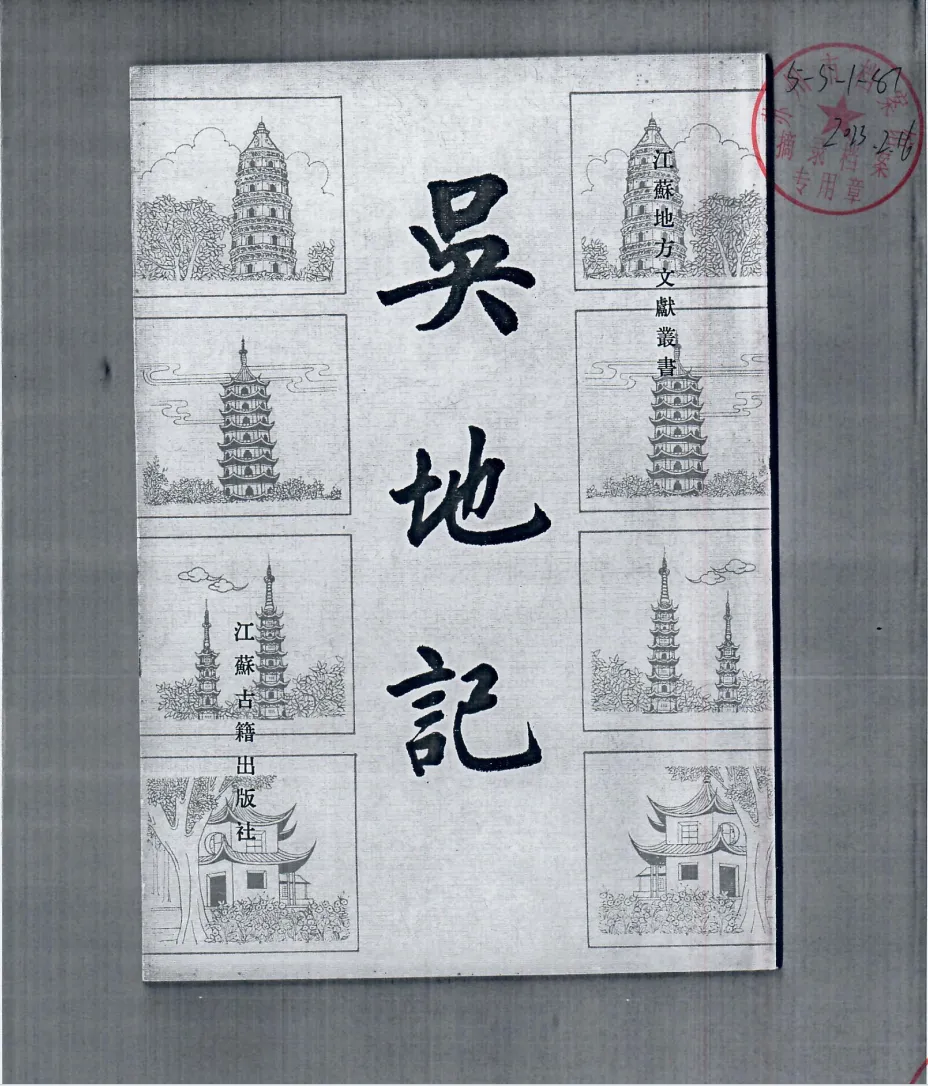 江蘇地方文獻叢書
吳地記
江蘇古籍出版社
5-5-1-67
2023.2.16
摘录档案
专用章